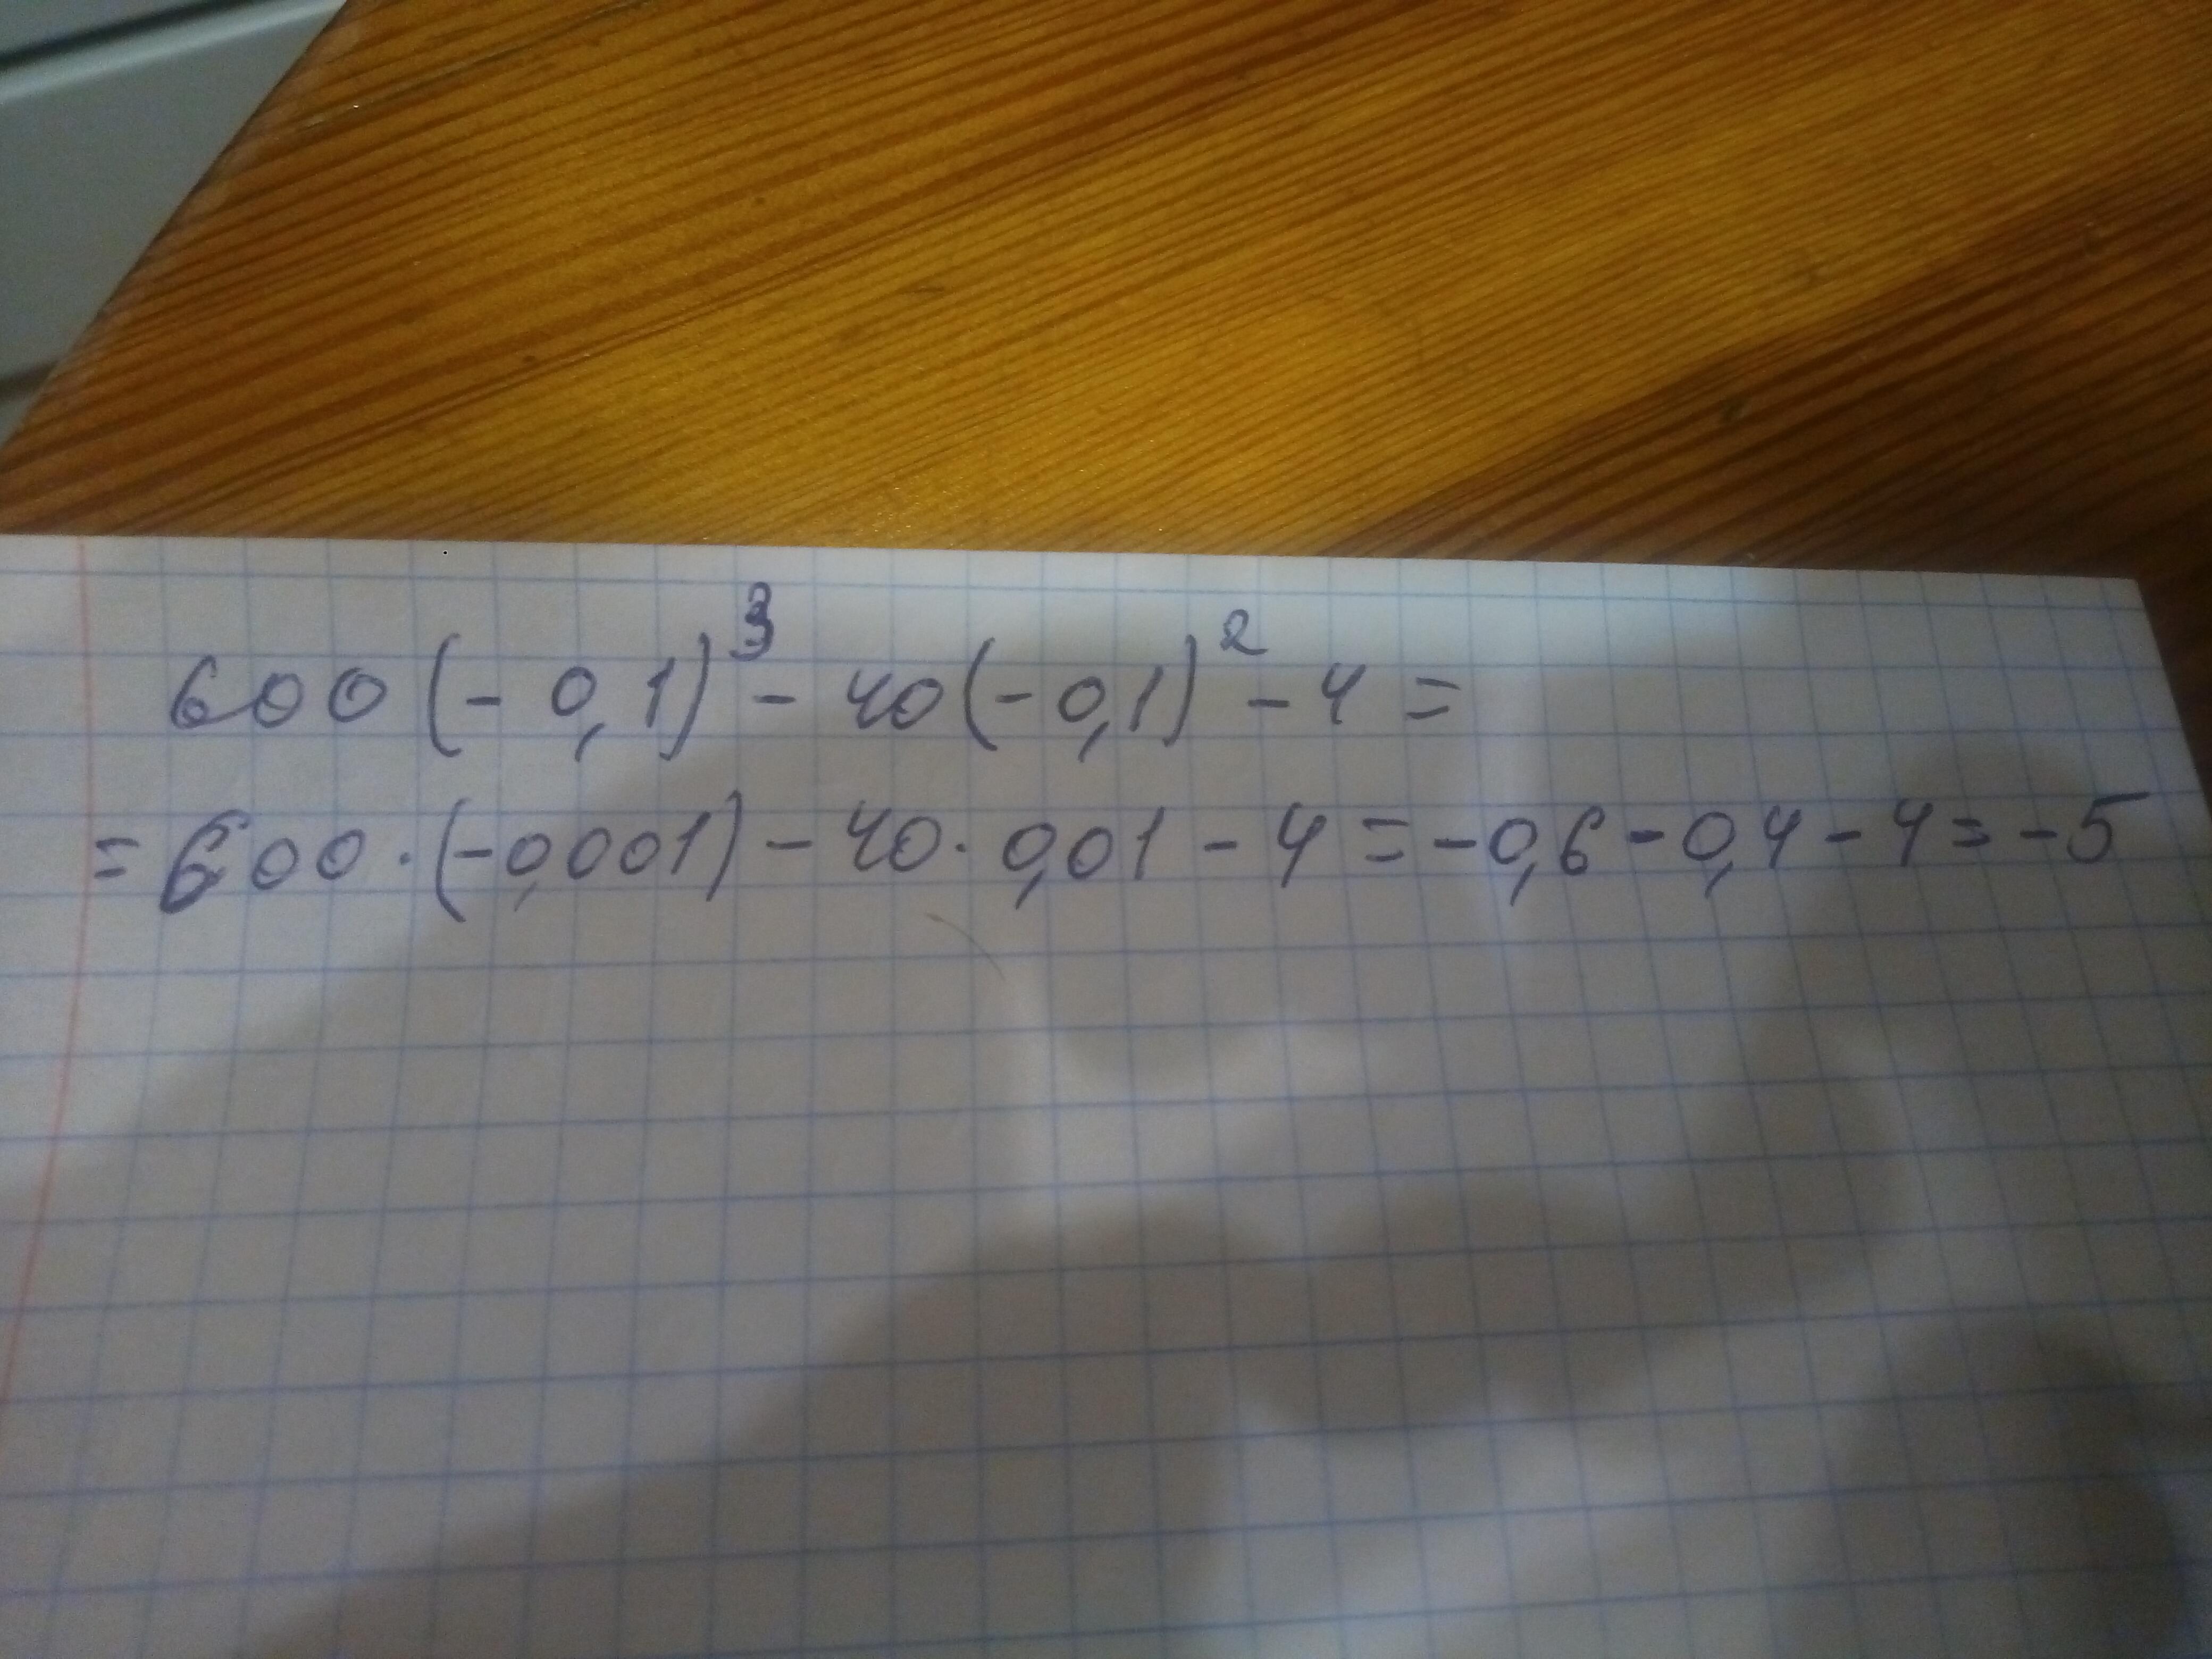 600(-0,1)³ - 40(-0,1)² - 4 =
= 600·(-0,001) - 40·0,01 - 4 = -0,6 - 0,4 - 4 = -5